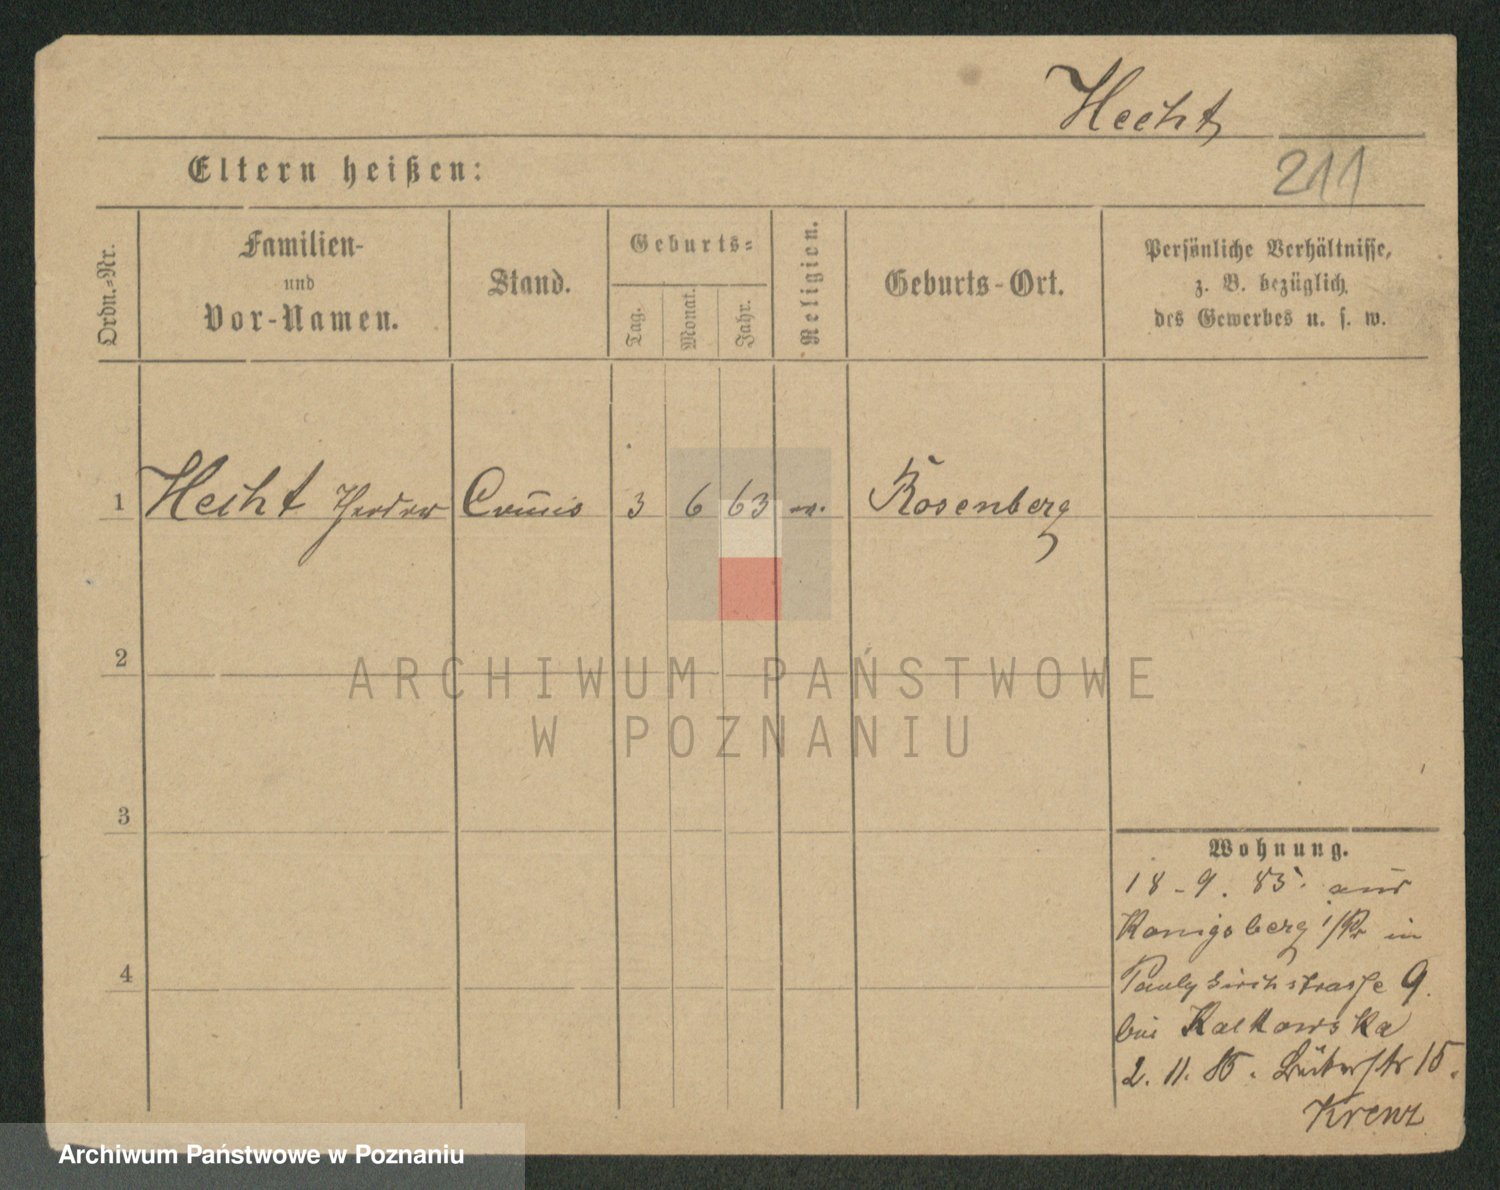 Hecht
211
Eltern heißen:
Ordn.-Nr.
Familien-
und
Vor-Namen.
Stand.
Geburts-
Tag.
Monat.
Jahr.
Religion.
Geburts-Ort.
Persönliche Verhältnisse,
z. B. bezüglich
des Gewerbes u. s. w.
1 Hecht Theodor Commis 3 6 63 m. Rosenberg
2
3
4
ARCHIWUM PAŃSTWOWE
W POZNANIU
Wohnung.
18-9. 85. aus
Konigsberg i/Pr in
Paulykirchstrasse 9.
bei Kalkowska
2. 11. 85. str 15.
Krenz
Archiwum Państwowe w Poznaniu